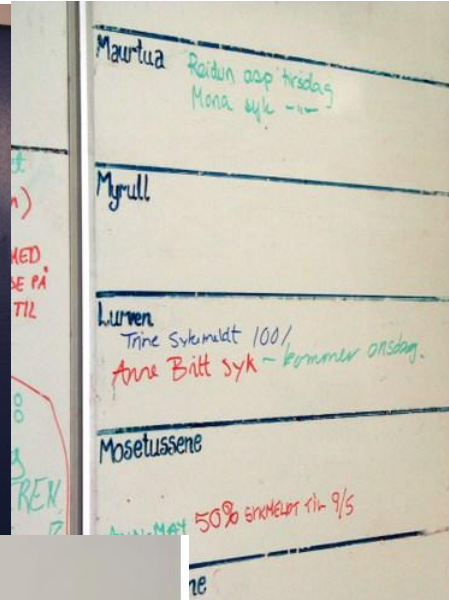 Maurtua
Reidun asp tirsdag
Mona syk -"-
Myrull
Lurven
Trine Sykemeldt 100%
Anne Britt syk - kommer onsdag.
Mosetussene
ANN-MAY 50% SYKMELDT TIL 9/5
MED
SE PÅ
TIL
REN
ne